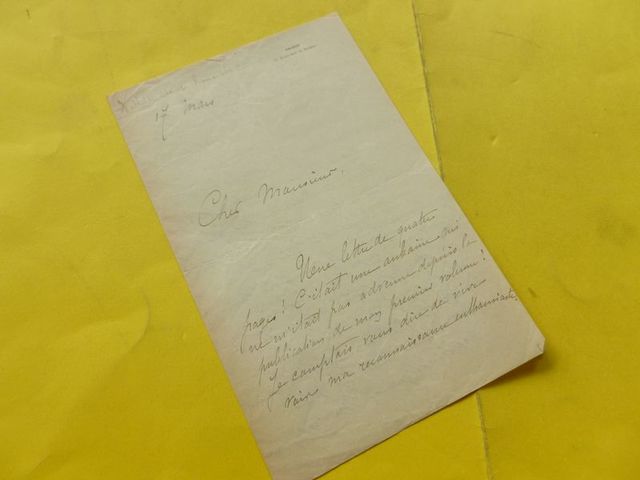 17 mars
Cher Monsieur,
Une lettre de quatre
pages ! C'était une aubaine qui
ne m'était pas advenue depuis la
publication de mon premier volume !
Je comptais vous dire de vive
voix ma reconnaissance enthousiaste,